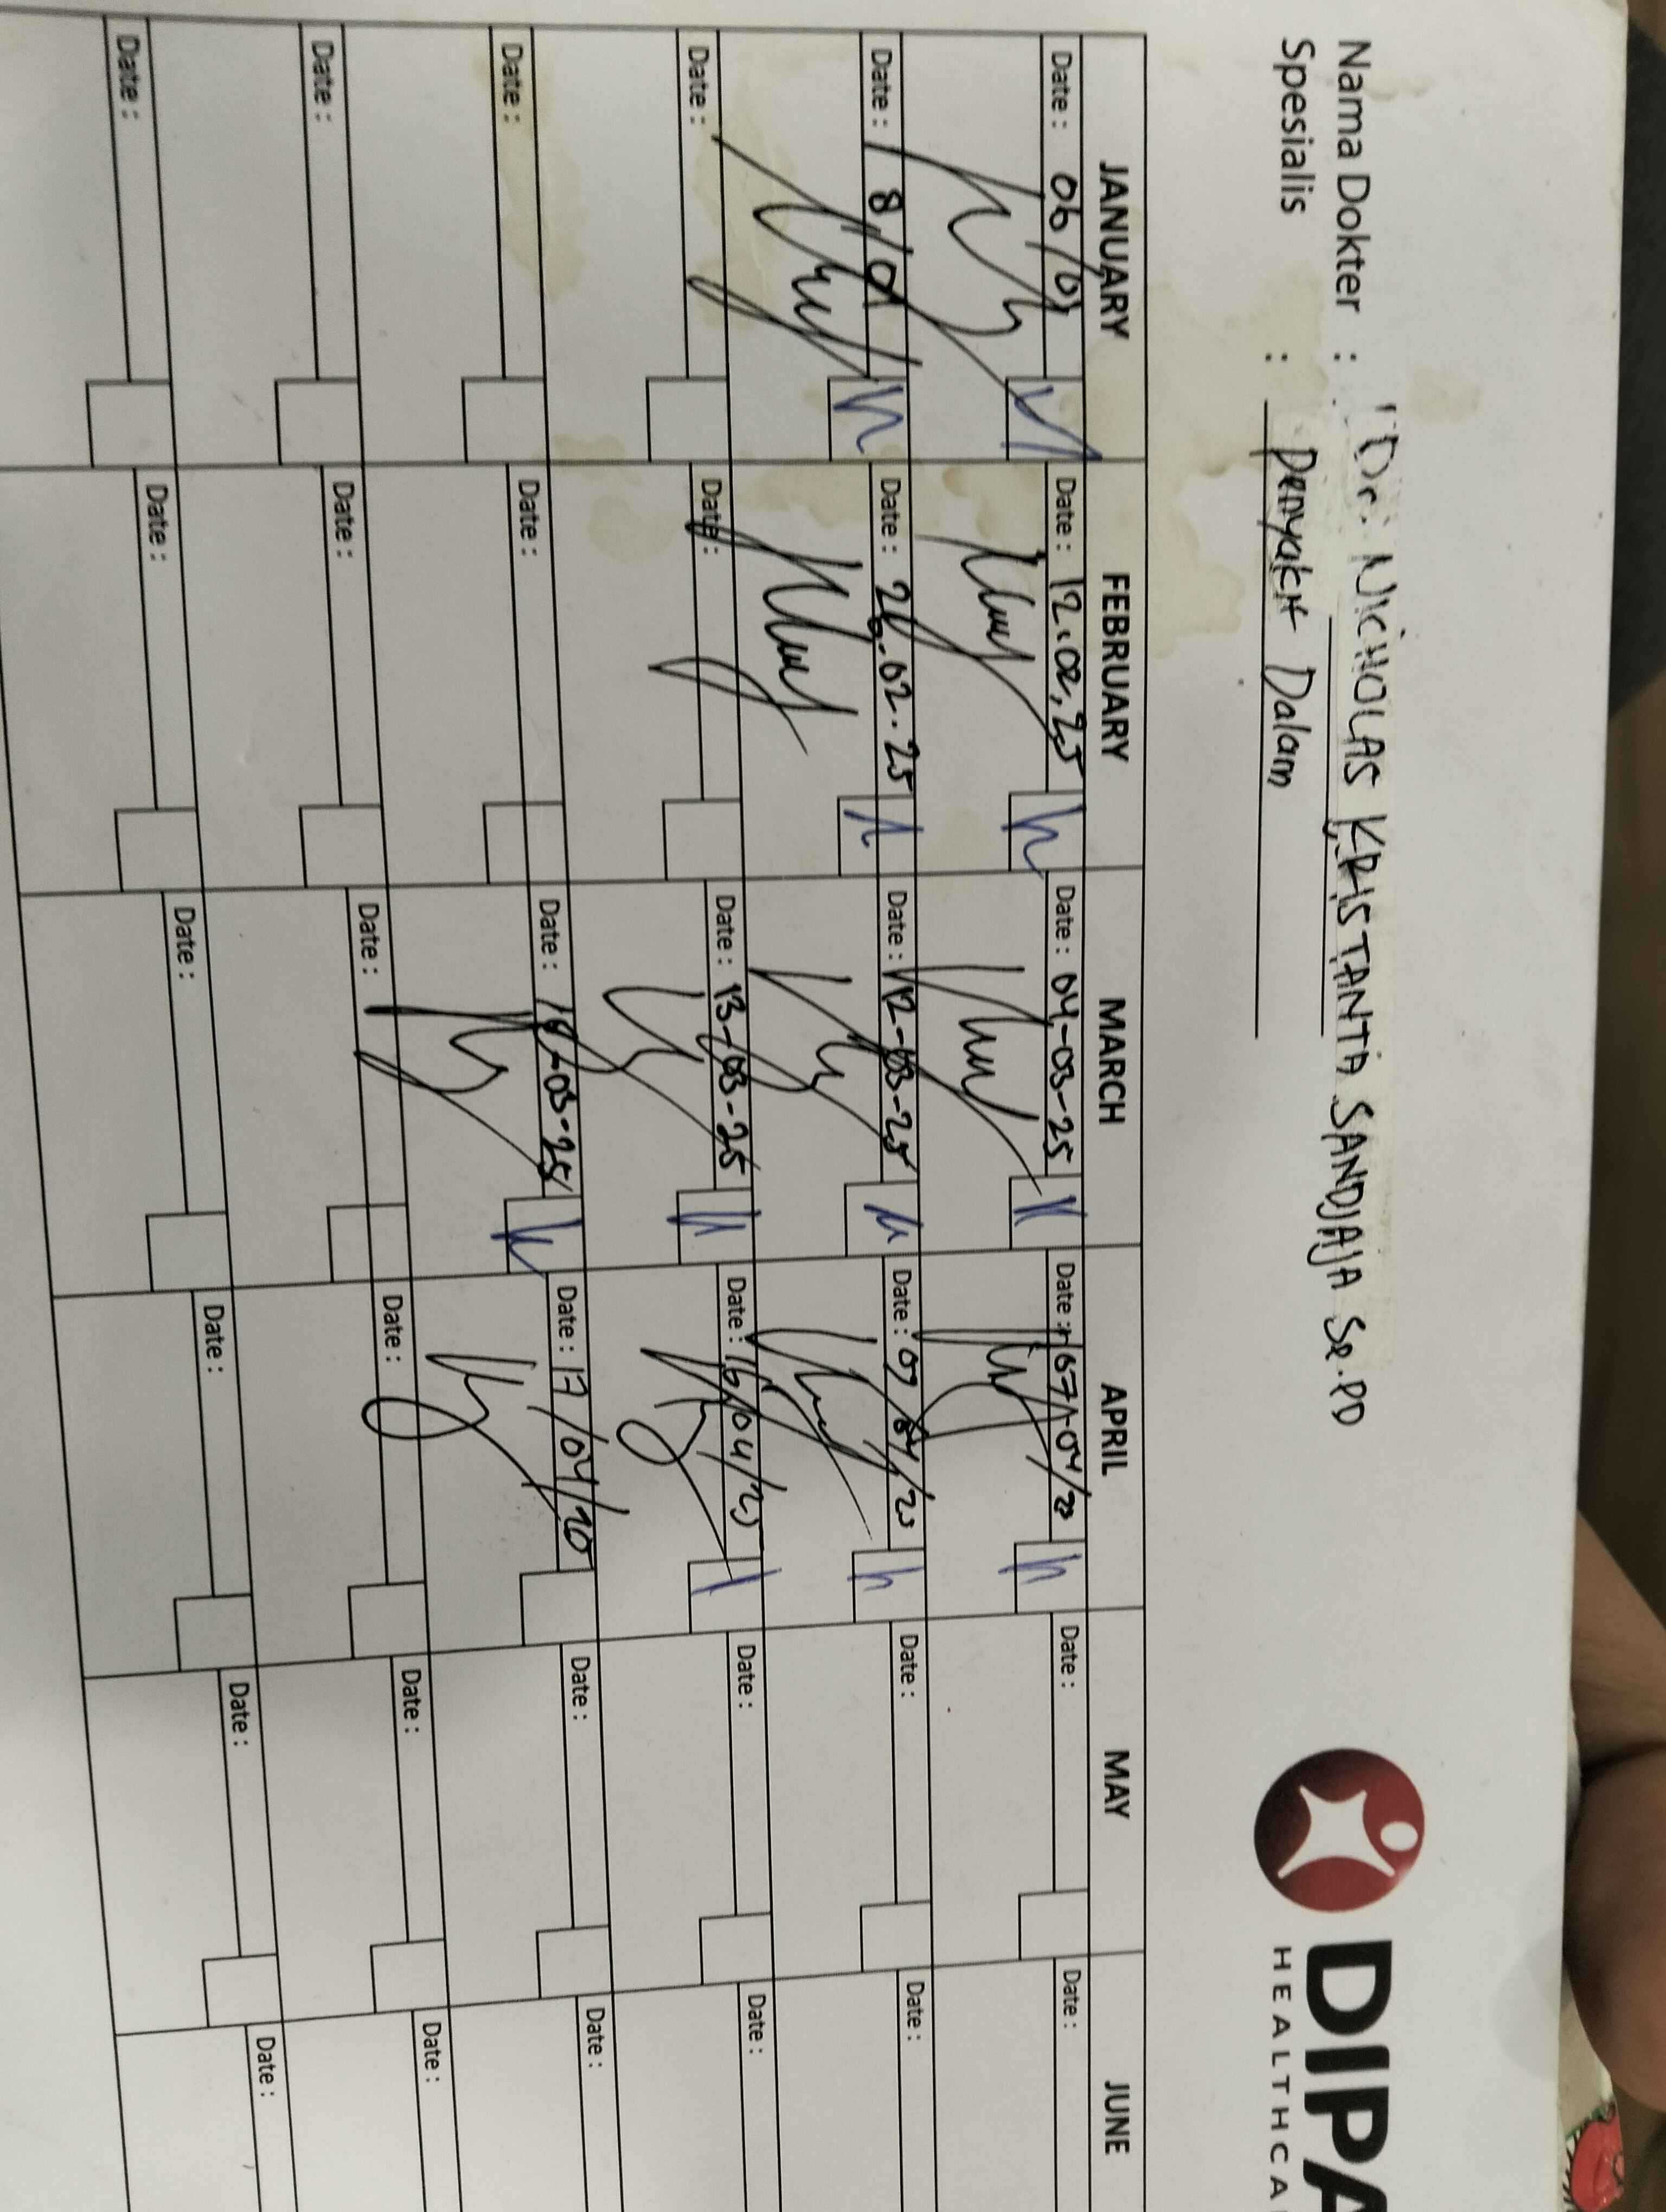 Nama Dokter : Dr. NICHOLAS KRISTANTA SANDJAJA Sp.PD
Spesialis : Penyakit Dalam
DIPA
HEALTHCA
JANUARY FEBRUARY MARCH APRIL MAY JUNE
Date : 06/01 Date : 12.02.25 Date : 04-03-25 Date : 07-04/25 Date : Date :
Date : 8/01 Date : 26.02.25 Date : 12-03-25 Date : 09/04/25 Date : Date :
Date : Date : Date : 13-03-25 Date : 16/04/25 Date : Date :
Date : Date : Date : -03-25 Date : 17/04/ Date : Date :
Date : Date : Date : Date : Date : Date :
Date : Date : Date : Date : Date : Date :